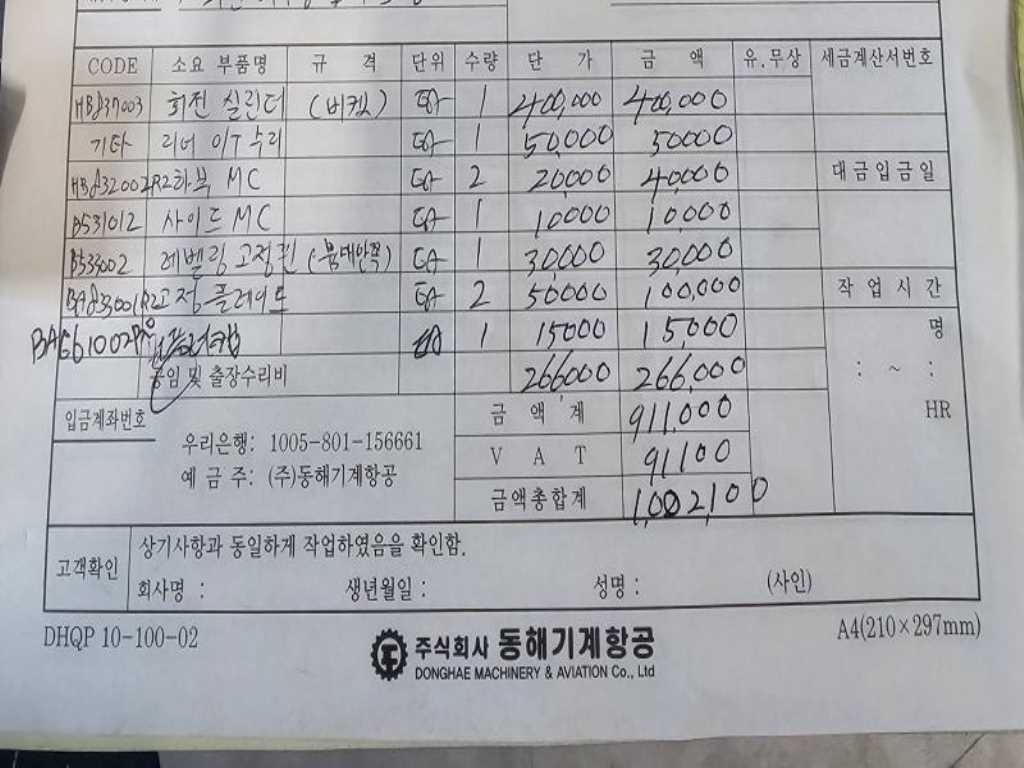 CODE 소요 부품명 규 격 단위 수량 단 가 금 액 유.무상 세금계산서번호
HBd37003 회전 실린더 (버켓) EA 1 400,000 400,000
기타 리너 이T 수리 EA 1 50,000 50000
HBd32002R2 하부 MC EA 2 20,000 40,000 대금입금일
B531012 사이드 MC EA 1 10000 10,000
B533002 레벨링 고정핀 (붐대안쪽) EA 1 30,000 30,000
BAd33001R2 고정 플레이트 EA 2 50000 100,000 작 업 시 간
EA 1 15000 15,000 명
공임 및 출장수리비 266000 266,000 : ~ :
입금계좌번호 금 액 계 911,000 HR
우리은행: 1005-801-156661 V A T 91100
예 금 주: (주)동해기계항공 금액총합계 1,002,100
고객확인 상기사항과 동일하게 작업하였음을 확인함.
회사명 : 생년월일 : 성명 : (사인)
DHQP 10-100-02 A4(210×297mm)
주식회사 동해기계항공
DONGHAE MACHINERY & AVIATION Co., Ltd